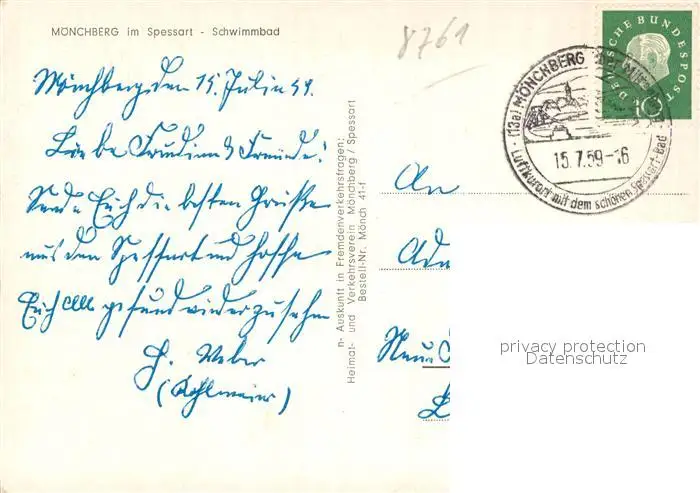 MÖNCHBERG im Spessart - Schwimmbad
8761
Mönchberg den 15. Julie 59.
Liebe Freundin & Freunde!
Sende Euch die besten Grüße
aus dem Spessart und hoffe
Euch alle gesund wieder zu sehn
H. Weber
(Kohlmeier)
n- Auskunft in Fremdenverkehrsfragen:
Heimat- und Verkehrsverein Mönchberg / Spessart
Bestell-Nr. Mönch 41-f
DEUTSCHE BUNDESPOST
10
(13a) MÖNCHBERG
15.7.59-16
Luftkurort mit dem schönen Spessart-Bad
An
Ade
Neue
privacy protection
Datenschutz